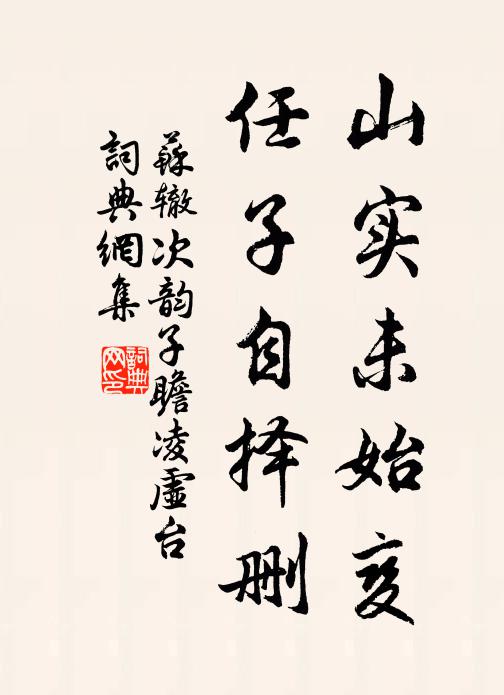 山实未始变
任子自择删
蘇辙次韵子瞻凌虚台
詞典網集
詞典网印